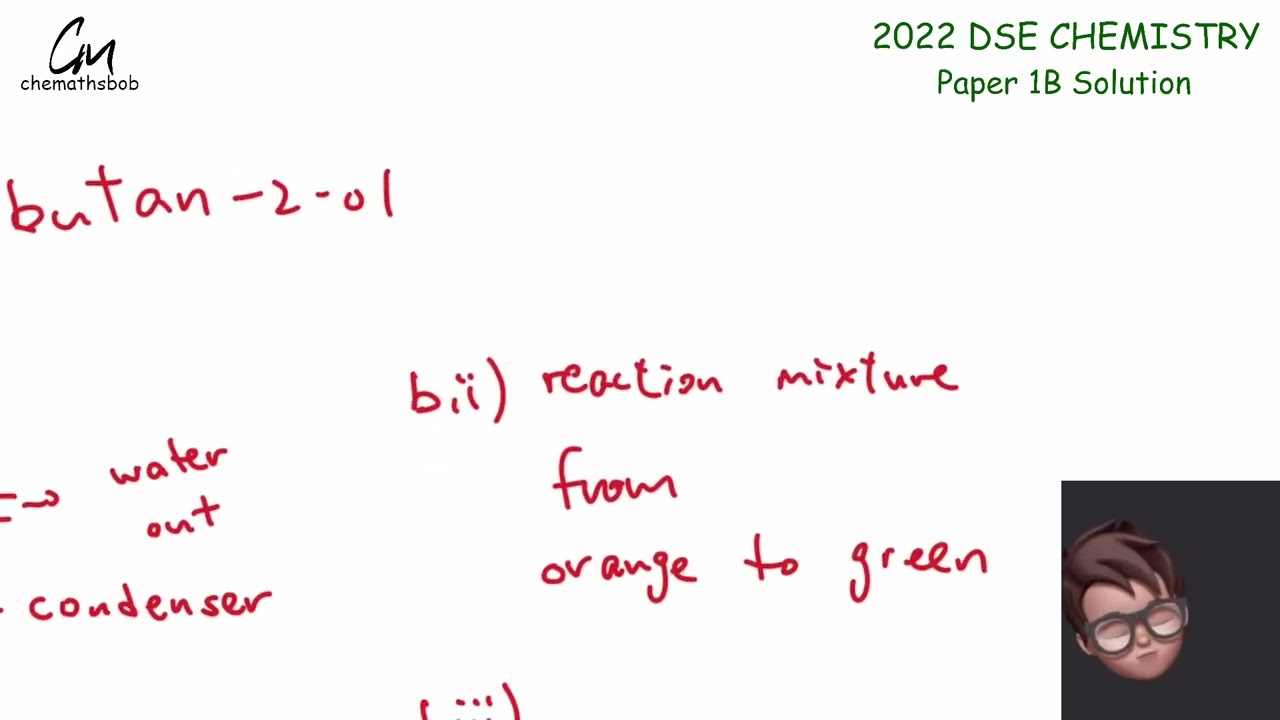 Cm
chemathsbob
2022 DSE CHEMISTRY
Paper 1B Solution
butan-2-ol
bii) reaction mixture
from
orange to green
water
out
condenser
iii)